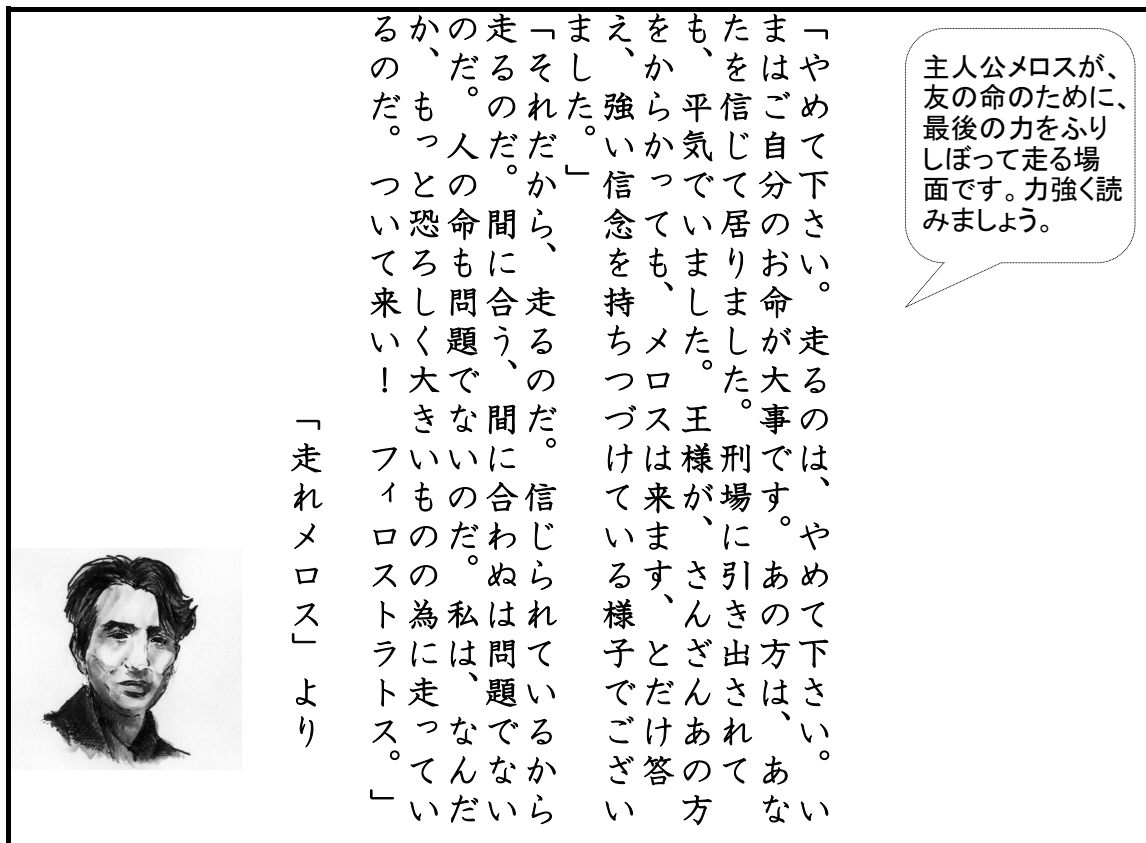 主人公メロスが、
友の命のために、
最後の力をふり
しぼって走る場
面です。力強く読
みましょう。
「やめて下さい。走るのは、やめて下さい。い
まはご自分のお命が大事です。あの方は、あな
たを信じて居りました。刑場に引き出されて
も、平気でいました。王様が、さんざんあの方
をからかっても、メロスは来ます、とだけ答
え、強い信念を持ちつづけている様子でござい
ました。」
「それだから、走るのだ。信じられているから
走るのだ。間に合う、間に合わぬは問題でない
のだ。人の命も問題でないのだ。私は、なんだ
か、もっと恐ろしく大きいものの為に走ってい
るのだ。ついて来い！フィロストラトス。」
「走れメロス」より